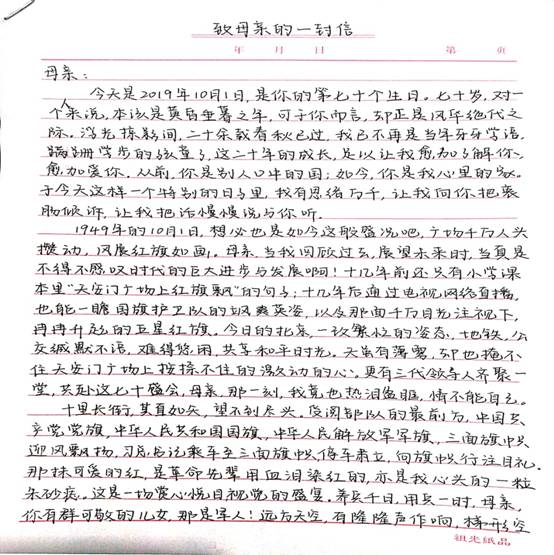 致母亲的一封信
年 月 日 第 页
母亲：
今天是2019年10月1日，是你的第七十个生日。七十岁，对一
个人来说，本该是黄昏垂暮之年，可于你而言，却正是风华绝代之
际。浮光掠影间，二十余载春秋已过，我已不再是当年牙牙学语，
蹒跚学步的孩童了，这二十年的成长，足以让我愈加了解你，
愈加爱你。从前，你是别人口中的国；如今，你是我心里的家。
于今天这样一个特别的日子里，我有思绪万千，让我向你把衷
肠倾诉，让我把话慢慢说与你听。
1949年的10月1日，想必也是如今这般盛况吧，广场千万人头
攒动，风展红旗如画。母亲，当我回顾过去，展望未来时，当真是
不得不感叹时代的巨大进步与发展啊！十几年前还只有小学课
本里"天安门广场上红旗飘"的句子；十几年后通过电视网络直播，
也能一瞻国旗护卫队的飒爽英姿，以及那面千万目光注视下，
冉冉升起的五星红旗。今日的北京，一改繁忙的姿态，地铁，公
交缄默不语，难得悠闲，共享和平时光。天虽有薄雾，却也掩不
住天安门广场上按捺不住的激动的心。更有三代领导人齐聚一
堂，共赴这七十盛会，母亲，那一刻，我竟也热泪盈眶，情不能自已。
十里长街，其直如矢，望不到尽头。受阅部队的最前方，中国共
产党党旗，中华人民共和国国旗，中华人民解放军军旗，三面旗帜
迎风飘扬，习总书记乘车至三面旗帜停车肃立，向旗帜行注目礼。
那抹可爱的红，是革命先辈用血泪染红的，亦是我心头的一粒
朱砂痣。这是一场赏心悦目视觉的盛宴。养兵千日，用兵一时，母亲，
你有群可敬的儿女，那是军人！远方天空，有隆隆声作响，梯形空
组米纸品